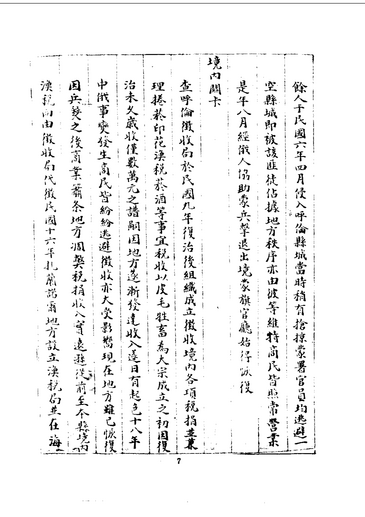 餘人于民國六年四月侵入呼倫縣城當時稍有搶掠蒙署官員均逃避一
空縣城即被該匪徒佔據地方秩序亦由彼等維持商民皆照常營業
是年八月經俄人協助蒙兵擊退出境蒙旗官廳始得恢復
境內關卡
查呼倫徵收局於民國九年復治後組織成立徵收境內各項稅捐並兼
理捲菸印花漁稅菸酒等事宜稅收以皮毛牲畜為大宗成立之初因復
治未久歲收僅數萬元之譜嗣因地方逐漸發達收入逐日有起色十八年
中俄事變發生商民皆紛紛逃避徵收亦大受影響現在地方雖已恢復
因兵燹之後商業蕭條地方凋樊稅捐收入實遠遜從前至本縣境內
漁稅向由徵收局代徵民國十六年札蘭諾爾地方設立漁稅局並在海
7